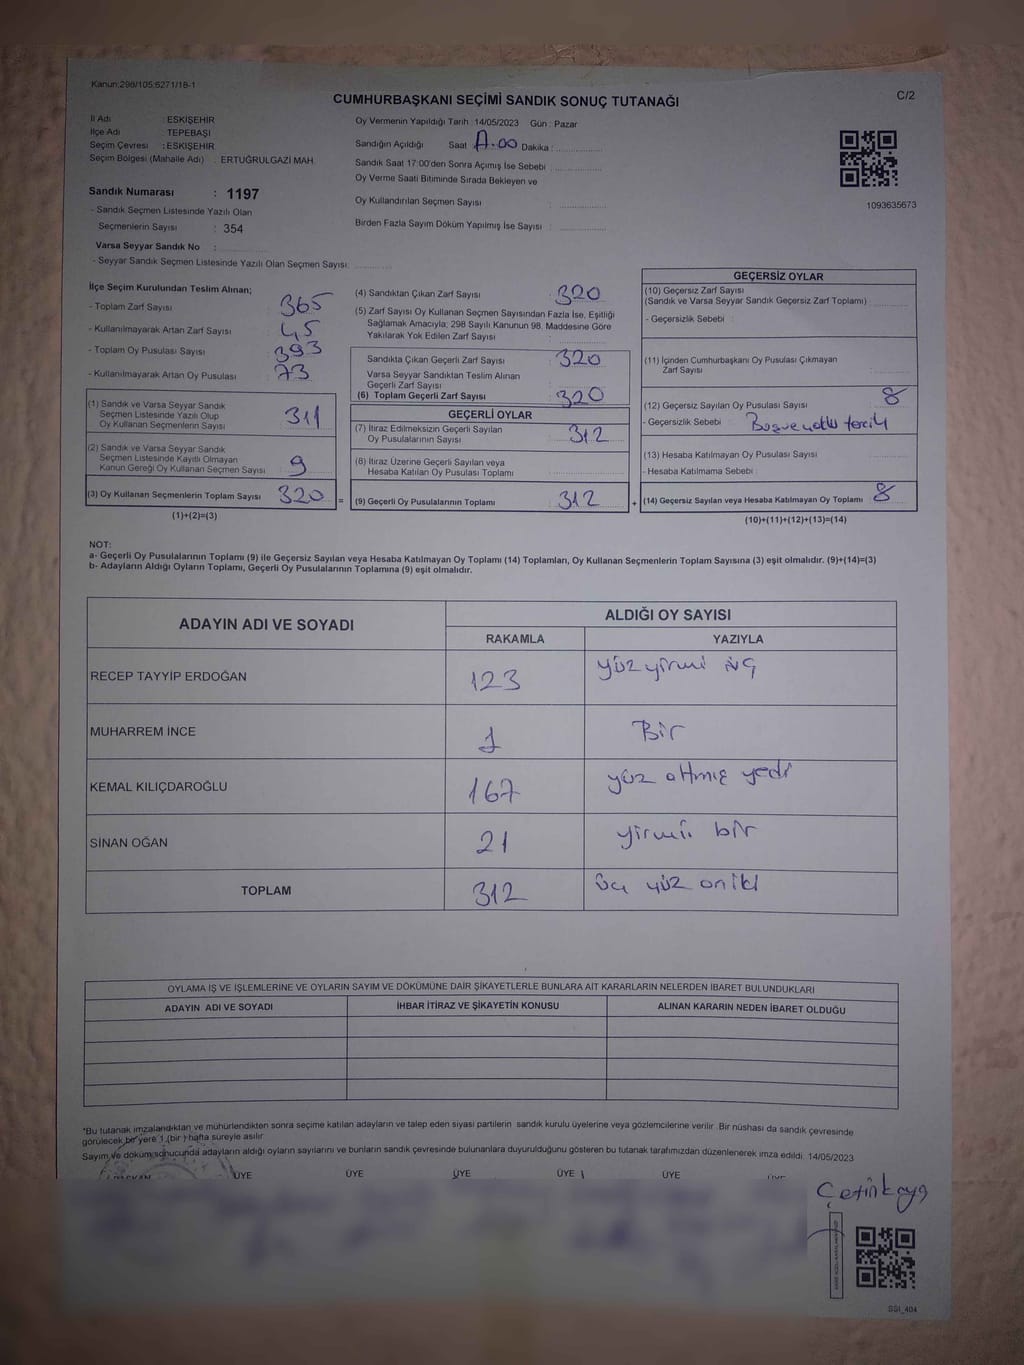 Kanun:298/105;6271/18-1
C/2
CUMHURBAŞKANI SEÇİMİ SANDIK SONUÇ TUTANAĞI
İl Adı : ESKİŞEHİR
İlçe Adı : TEPEBAŞI
Seçim Çevresi : ESKİŞEHİR
Seçim Bölgesi (Mahalle Adı) : ERTUĞRULGAZİ MAH.
Sandık Numarası : 1197
- Sandık Seçmen Listesinde Yazılı Olan
Seçmenlerin Sayısı : 354
Varsa Seyyar Sandık No :
- Seyyar Sandık Seçmen Listesinde Yazılı Olan Seçmen Sayısı:
Oy Vermenin Yapıldığı Tarih : 14/05/2023 Gün : Pazar
Sandığın Açıldığı Saat .00 Dakika :
Sandık Saat 17:00'den Sonra Açımış İse Sebebi :
Oy Verme Saati Bitiminde Sırada Bekleyen ve
Oy Kullandırılan Seçmen Sayısı :
Birden Fazla Sayım Döküm Yapılmış İse Sayısı :
1093635673
İlçe Seçim Kurulundan Teslim Alınan;
- Toplam Zarf Sayısı : 365
- Kullanılmayarak Artan Zarf Sayısı : 45
- Toplam Oy Pusulası Sayısı : 393
- Kullanılmayarak Artan Oy Pusulası : 73
(1) Sandık ve Varsa Seyyar Sandık
Seçmen Listesinde Yazılı Olup
Oy Kullanan Seçmenlerin Sayısı : 311
(2) Sandık ve Varsa Seyyar Sandık
Seçmen Listesinde Kayıtlı Olmayan
Kanun Gereği Oy Kullanan Seçmen Sayısı : 9
(3) Oy Kullanan Seçmenlerin Toplam Sayısı : 320 =
(1)+(2)=(3)
(4) Sandıktan Çıkan Zarf Sayısı : 320
(5) Zarf Sayısı Oy Kullanan Seçmen Sayısından Fazla İse, Eşitliği
Sağlamak Amacıyla; 298 Sayılı Kanunun 98. Maddesine Göre
Yakılarak Yok Edilen Zarf Sayısı :
Sandıkta Çıkan Geçerli Zarf Sayısı : 320
Varsa Seyyar Sandıktan Teslim Alınan
Geçerli Zarf Sayısı :
(6) Toplam Geçerli Zarf Sayısı : 320
GEÇERLİ OYLAR
(7) İtiraz Edilmeksizin Geçerli Sayılan
Oy Pusulalarının Sayısı : 312
(8) İtiraz Üzerine Geçerli Sayılan veya
Hesaba Katılan Oy Pusulası Toplamı :
(9) Geçerli Oy Pusulalarının Toplamı : 312 +
GEÇERSİZ OYLAR
(10) Geçersiz Zarf Sayısı
(Sandık ve Varsa Seyyar Sandık Geçersiz Zarf Toplamı) :
- Geçersizlik Sebebi :
(11) İçinden Cumhurbaşkanı Oy Pusulası Çıkmayan
Zarf Sayısı :
(12) Geçersiz Sayılan Oy Pusulası Sayısı : 8
- Geçersizlik Sebebi : tercih
(13) Hesaba Katılmayan Oy Pusulası Sayısı :
- Hesaba Katılmama Sebebi :
(14) Geçersiz Sayılan veya Hesaba Katılmayan Oy Toplamı : 8
(10)+(11)+(12)+(13)=(14)
NOT:
a- Geçerli Oy Pusulalarının Toplamı (9) ile Geçersiz Sayılan veya Hesaba Katılmayan Oy Toplamı (14) Toplamları, Oy Kullanan Seçmenlerin Toplam Sayısına (3) eşit olmalıdır. (9)+(14)=(3)
b- Adayların Aldığı Oyların Toplamı, Geçerli Oy Pusulalarının Toplamına (9) eşit olmalıdır.
ADAYIN ADI VE SOYADI
ALDIĞI OY SAYISI
RAKAMLA YAZIYLA
RECEP TAYYİP ERDOĞAN 123 yüz yirmi üç
MUHARREM İNCE 1 Bir
KEMAL KILIÇDAROĞLU 167 yüz altmış yedi
SİNAN OĞAN 21 yirmi bir
TOPLAM 312 üç yüz oniki
OYLAMA İŞ VE İŞLEMLERİNE VE OYLARIN SAYIM VE DÖKÜMÜNE DAİR ŞİKAYETLERLE BUNLARA AİT KARARLARIN NELERDEN İBARET BULUNDUKLARI
ADAYIN ADI VE SOYADI İHBAR İTİRAZ VE ŞİKAYETİN KONUSU ALINAN KARARIN NEDEN İBARET OLDUĞU
*Bu tutanak imzalandıktan ve mühürlendikten sonra seçime katılan adayların ve talep eden siyasi partilerin sandık kurulu üyelerine veya gözlemcilerine verilir. Bir nüshası da sandık çevresinde
görülecek bir yere 1 (bir ) hafta süreyle asılır.
Sayım ve döküm sonucunda adayların aldığı oyların sayılarını ve bunların sandık çevresinde bulunanlara duyurulduğunu gösteren bu tutanak tarafımızdan düzenlenerek imza edildi. 14/05/2023
BAŞKAN ÜYE ÜYE ÜYE ÜYE ÜYE
Çetinkaya
SSI_404